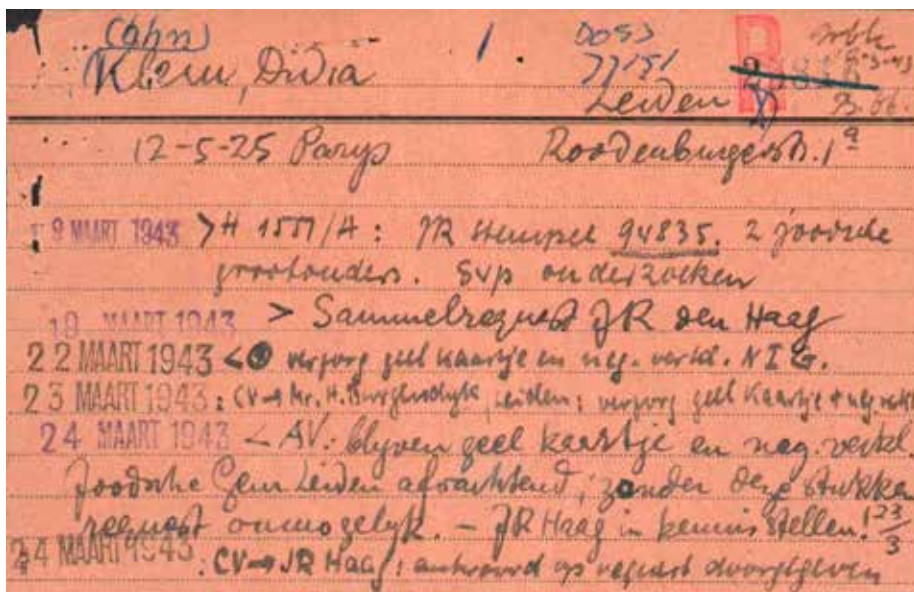 (Cohn) 1. D053
Klein, Didia 77151
Leiden
12-5-25 Parijs Roodenburgerstr. 1a
9 MAART 1943 > H 1557/A: JR Stempel 94835. 2 joodsche
grootouders. svp onderzoeken
19 MAART 1943 > Sammelrequest JR den Haag
22 MAART 1943 < verzorg geel kaartje en neg. verkl. N I G.
23 MAART 1943: CV→Mr. H. Burgersdijk, Leiden: verzorg geel kaartje + neg. verkl
24 MAART 1943 < AV: blijven geel kaartje en neg. verkl.
Joodsche Gem Leiden afwachtend, zonder deze stukken
request onmogelijk. – JR Haag in kennis stellen! 23/3
24 MAART 1943: CV→JR Haag: antwoord op request doorgegeven